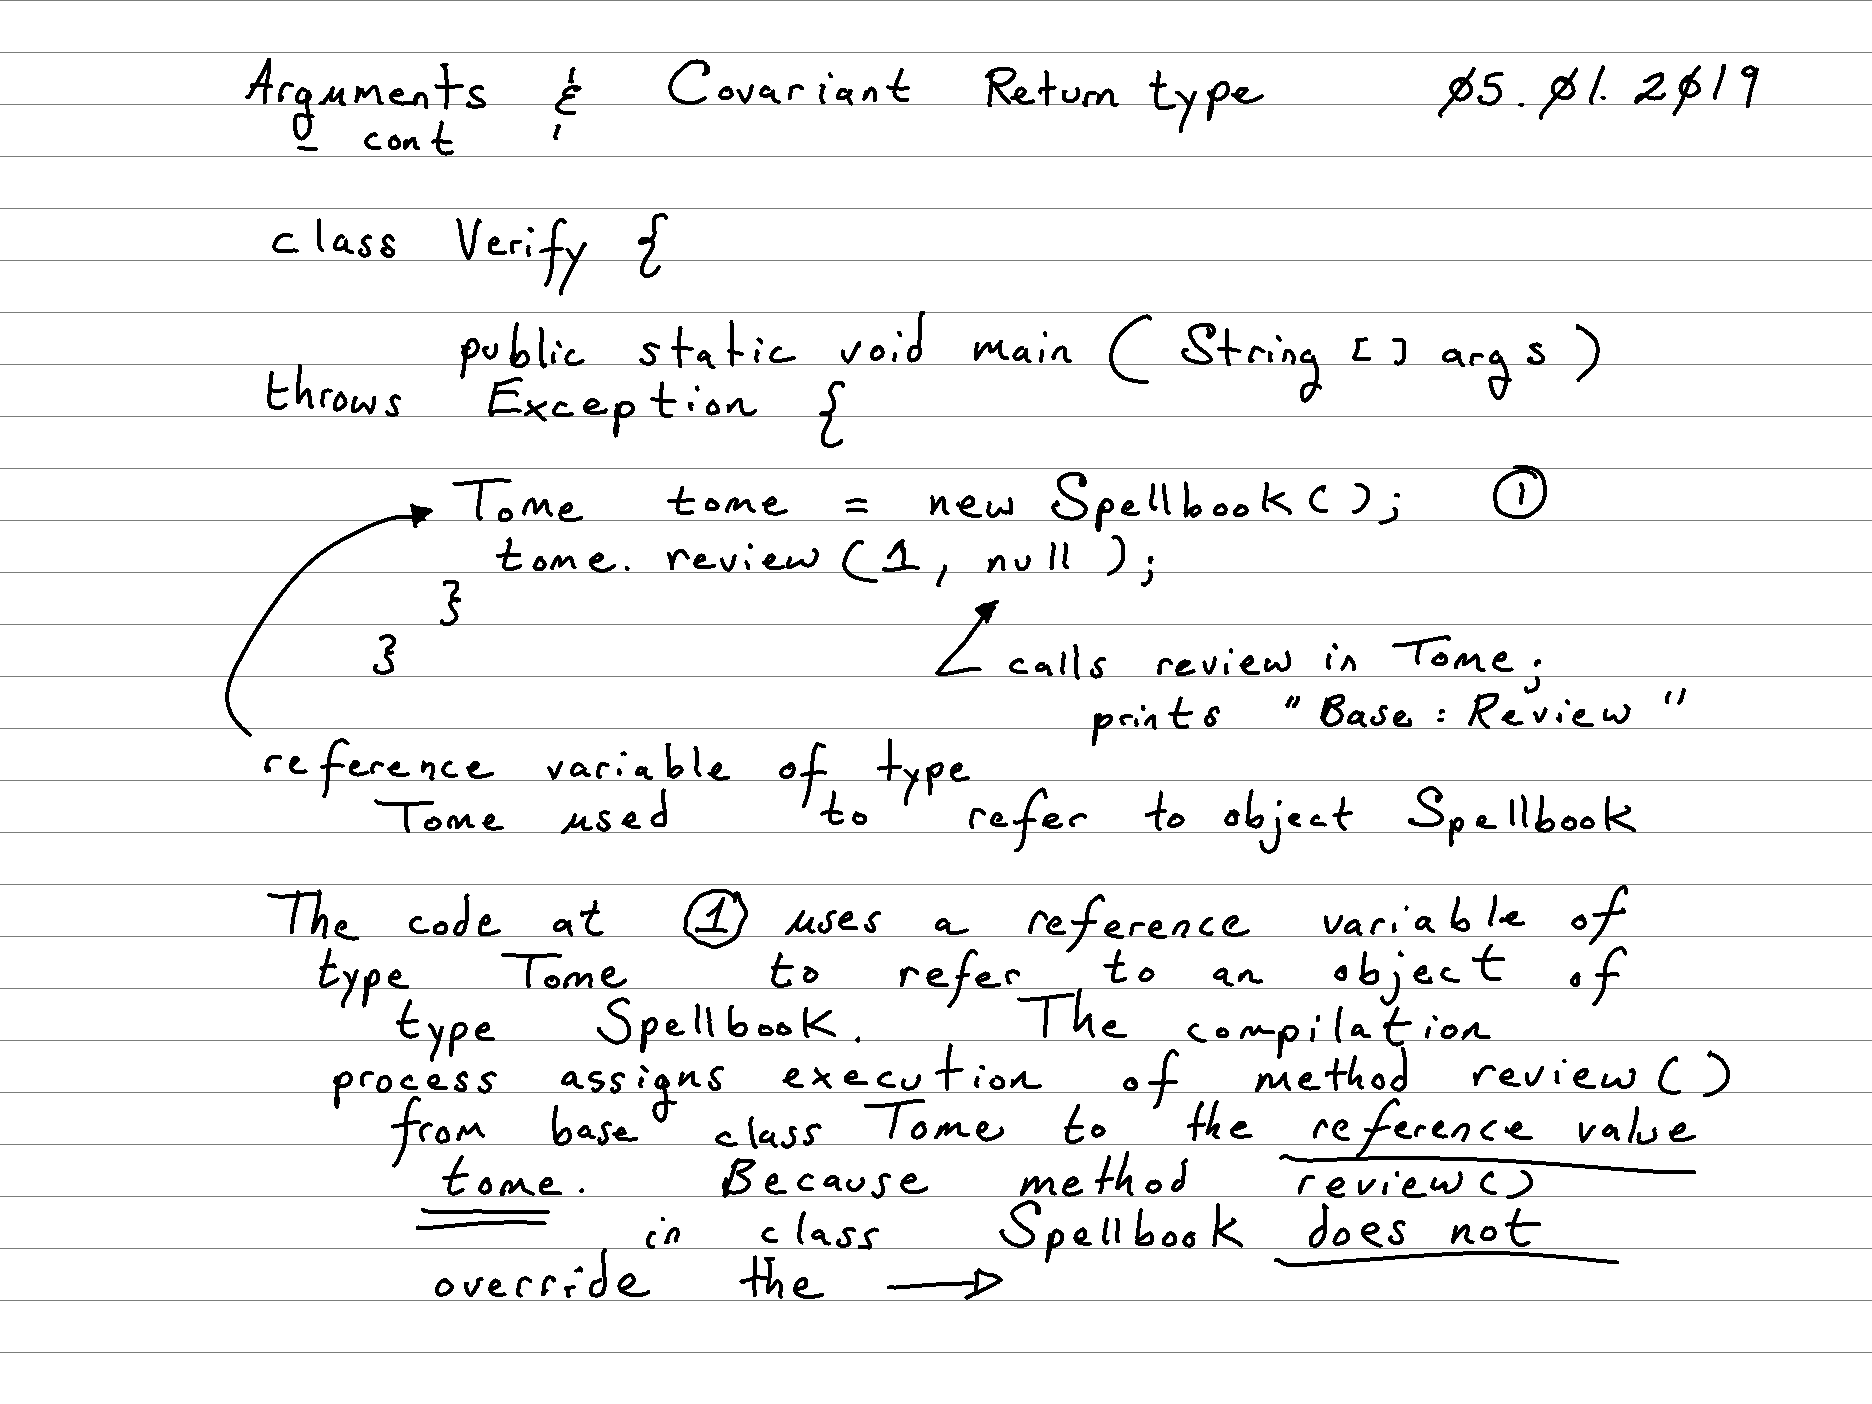 Arguments & Covariant Return type 05.01.2019
cont
class Verify {
public static void main ( String [] args )
throws Exception {
Tome tome = new Spellbook(); ①
tome. review (1, null );
}
}
calls review in Tome;
prints "Base: Review"
reference variable of type
Tome used to refer to object Spellbook
The code at ① uses a reference variable of
type Tome to refer to an object of
type Spellbook. The compilation
process assigns execution of method review()
from base class Tome to the reference value
tome. Because method review()
in class Spellbook does not
override the →